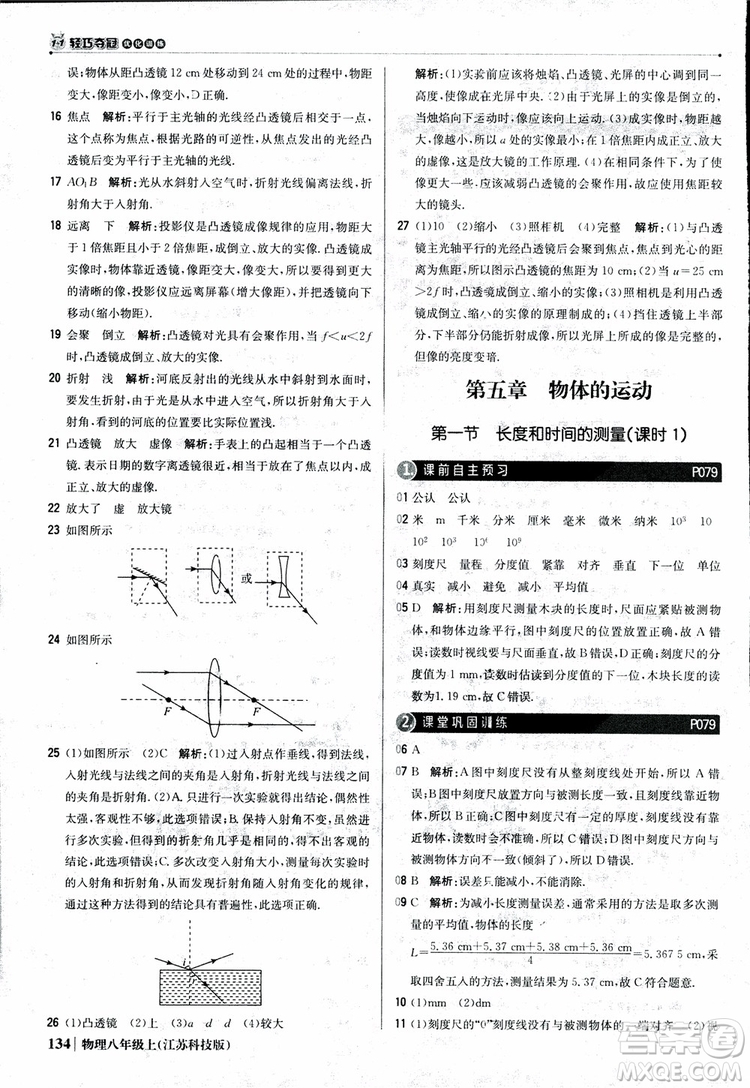 1+1 轻巧夺冠 优化训练
误:物体从距凸透镜 12 cm 处移动到 24 cm 处的过程中,物距
变大,像距变小,像变小,D 正确.
16 焦点 解析:平行于主光轴的光线经凸透镜后相交于一点,
这个点称为焦点,根据光路的可逆性,从焦点发出的光经凸
透镜后变为平行于主光轴的光线.
17 AO₁B 解析:光从水斜射入空气时,折射光线偏离法线,折
射角变大.
18 远离 下 解析:投影仪是凸透镜成像规律的应用,物距大
于 1 倍焦距小于 2 倍焦距,成倒立、放大的实像.凸透镜成
实像时,物体靠近透镜,像变大且像远离透镜,要得到更大
的清晰的像,投影仪应远离屏幕(银幕),并把投影片向下
移动.
19 会聚 倒立 解析:凸透镜对光具有会聚作用,当 f<u<2f
时,成倒立、放大的实像.
20 折射 浅 解析:河底反射出的光线从水中斜射到水面时,
要发生折射,由于是光从水中斜射入空气中,折射角大于入
射角,看到的河底的位置要比实际位置高.
21 凸透镜 放大 虚像 解析:手表上的凸起相当于一个凸透
镜.表示日期的数字离透镜很近,在一倍焦距以内,所以成
放大的虚像.
22 放大了 虚 放大镜
23 如图所示
或
24 如图所示
F F
25 (1)如图所示 (2)C 解析:(1)过入射点作垂线,即法线,
入射光线与法线之间的夹角是入射角,折射光线与法线之
间的夹角是折射角;(2)A.只进行一次实验就得出结论,偶然性
太强,不够合理,此选项错误;B.保持入射角不变,虽然能
进行多次实验,但数据仍具有偶然性,得不到普遍结论,此
选项错误;C.多次实验逐渐改变入射角的大小,测量每次实验
的入射角和折射角,分析折射角随入射角变化的规律,
这样得出的结论具有普遍性,此选项正确.
i
26 (1)凸透镜 (2)c (3)a d d (4)较大
134 物理八年级上(江苏科技版)
解析:(1)实验前应该将烛焰、凸透镜、光屏的中心在同一
高度,使像成在光屏上,光屏上的实像是倒立的.(2)成像时,
当烛焰向下移动时,像向上移动.(3)成实像时,物距越大,
像越小,所以 a 处的实像最小;在 1 倍焦距以内成正立、放大
的虚像,这是放大镜的工作原理.(4)在相同条件下,“大肚
子”的焦距更小,所以应该减弱凸透镜的会聚作用,应该换焦
距较大的镜头.
27 (1)10 (2)缩小 (3)照相机 (4)完整 解析:(1)与凸透
镜主光轴平行的光经凸透镜后会聚到焦点,焦点到光心的
距离为焦距,所以图示凸透镜的焦距为 10 cm;(2)当 u=25 cm
>2f 时,凸透镜成倒立、缩小的实像;(3)照相机是根据凸透
镜成倒立、缩小的实像的原理制成的;(4)挡住凸透镜上半部
分,下半部分仍能折射成像,所以光屏上的像还是完整的,但
像的亮度变暗.
第五章 物体的运动
第一节 长度和时间的测量(课时 1)
1. 课前自主预习 P079
01 公认 公认
02 米 m 千米 分米 厘米 毫米 微米 纳米 10³ 10
10² 10³ 10⁶ 10⁹
03 刻度尺 量程 分度值 紧靠 对齐 垂直 下一位 单位
04 真实 减小 避免 减小 平均值
05 D 解析:用刻度尺测量木块的长度时,尺应紧贴被测物
体,和物体边缘平行,图中刻度尺的位置放置正确,不符合
题意;读数时视线要与尺面垂直,不符合题意;图中刻度尺的
分度值为 1 mm,读数时估读到分度值的下一位,木块长度可
记为 1.19 cm,不符合题意,读数错误.
2. 课堂巩固训练 P079
06 A
07 B 解析:A 图中刻度尺没有从整刻度线处开始,所以测量
错误;B 图中刻度尺放置方向与被测长度平行,一端从整
刻度线开始,刻度线紧贴物体,所以测量正确;C 图中刻度尺未
靠近物体,所以测量错误;D 图中刻度尺刻度尺方向与
被测物体方向不一致(倾斜了),所以测量错误.
08 B 解析:误差只能减小,不能避免.
09 C 解析:为减小长度测量误差,通常采用的方法是求多次测
量的平均值,物体的长度
L=(5.36 cm+5.37 cm+5.36 cm+5.38 cm)/4=5.3675 cm,采
取四舍五入的方法,测量值为 5.37 cm,故 C 符合题意.
10 (1)mm (2)dm
11 (1)刻度尺的“0”刻线没有与物体的一端对齐 (2)视